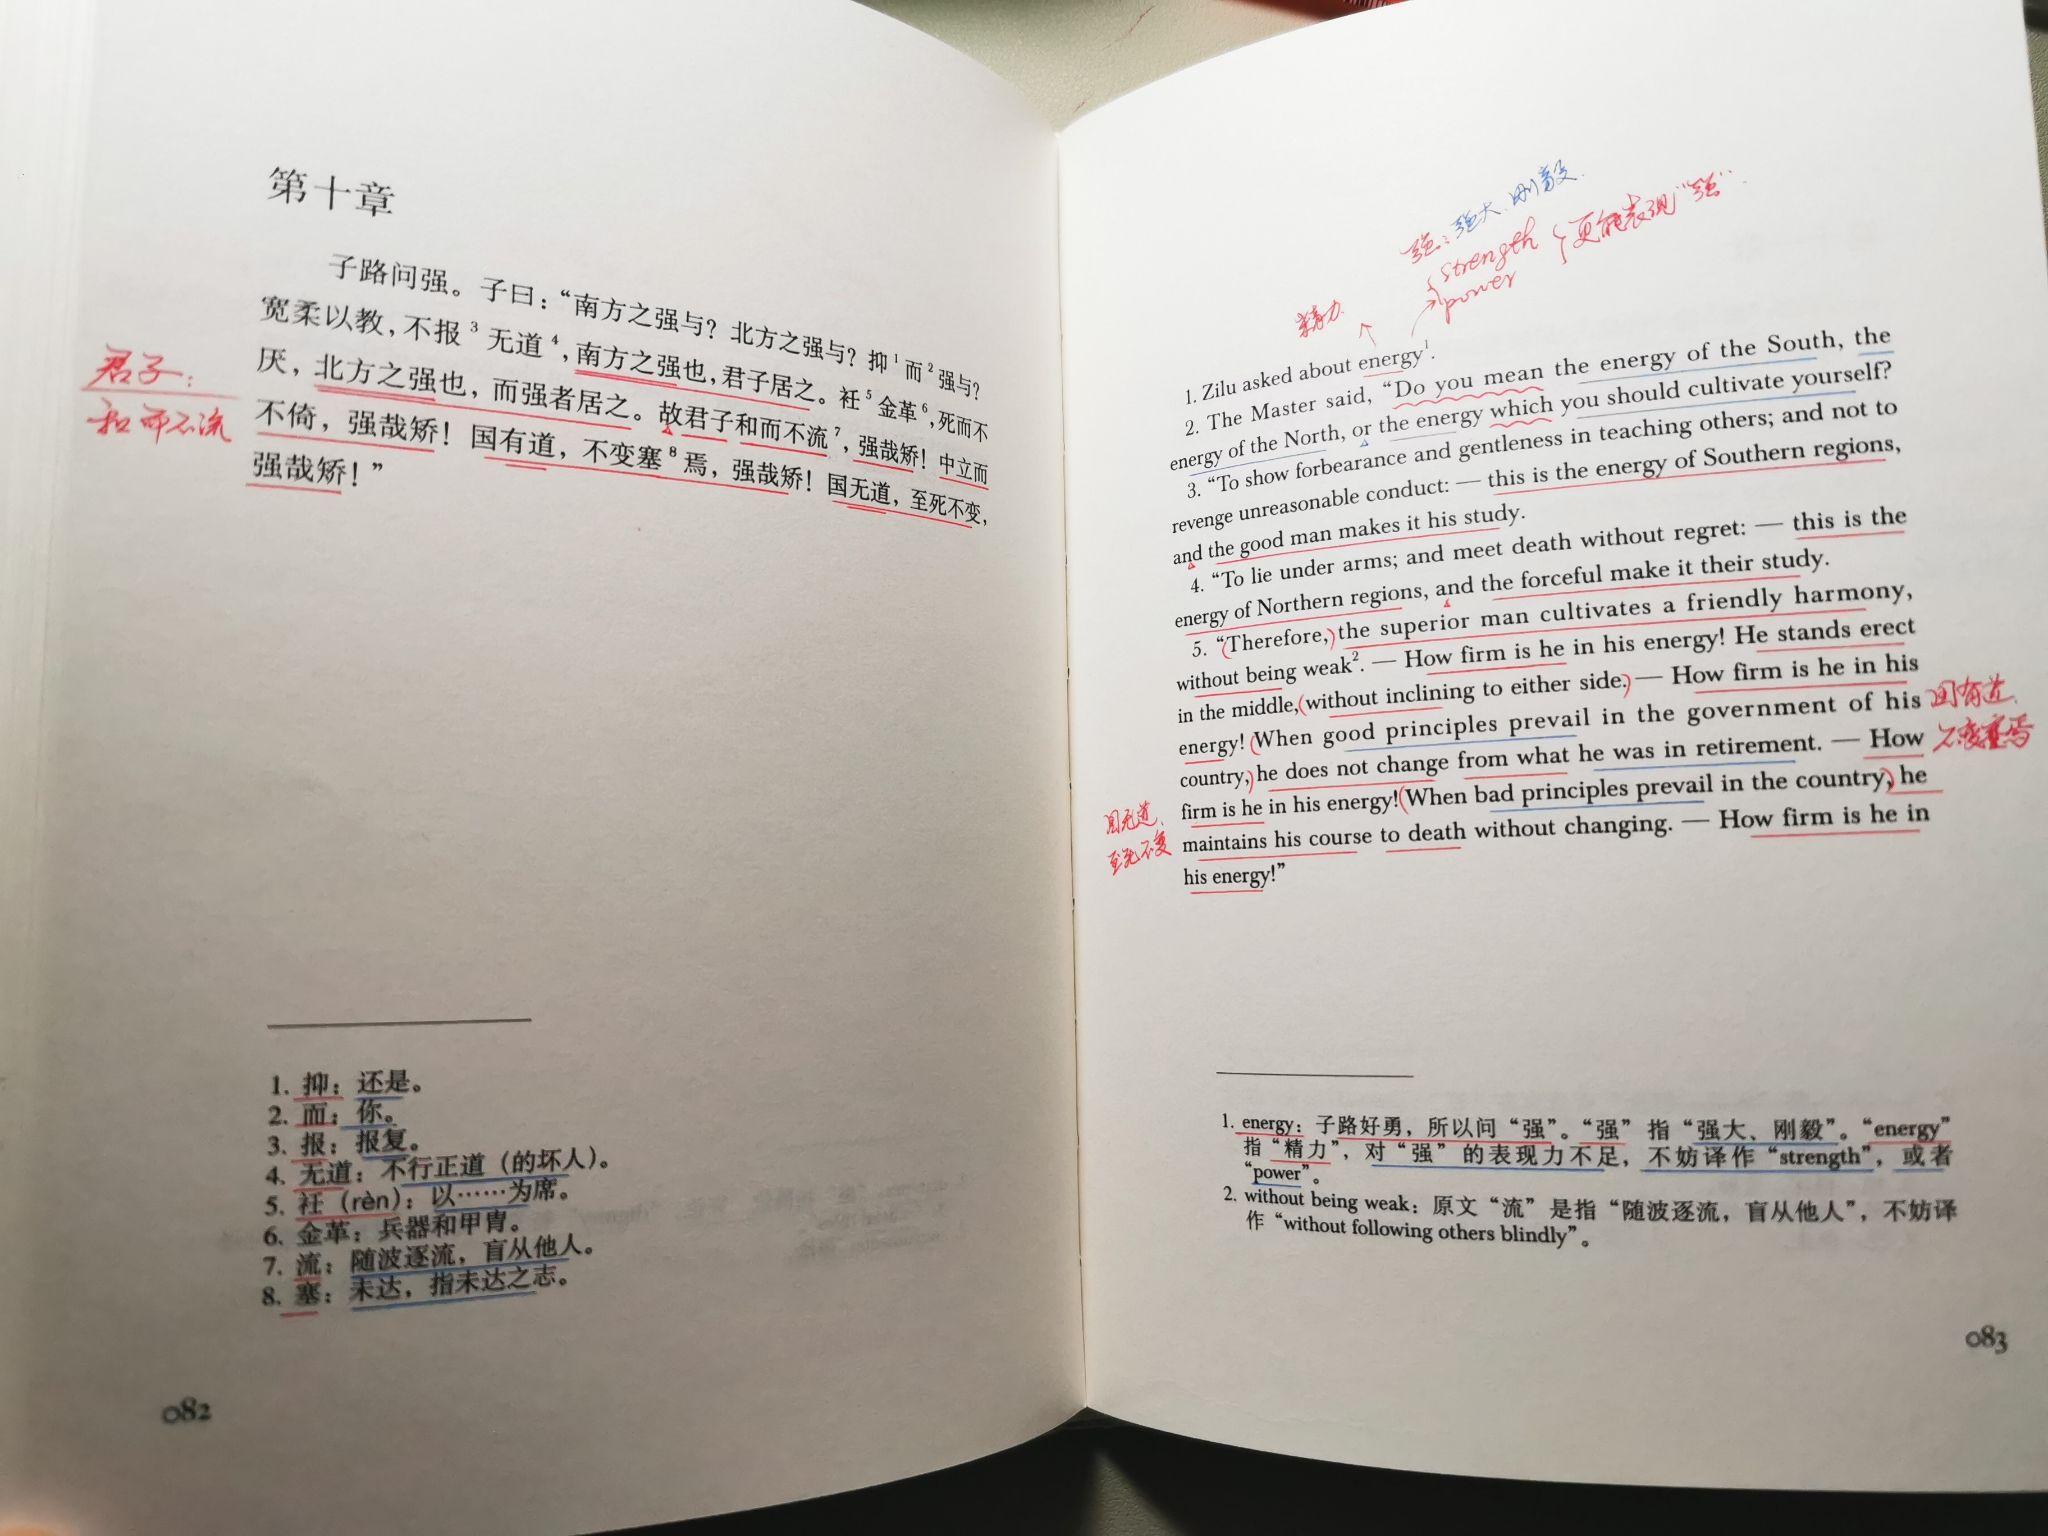 第十章
子路问强。子曰：“南方之强与？北方之强与？抑¹而²强与？
宽柔以教，不报³无道⁴，南方之强也，君子居之。衽⁵金革⁶，死而不
厌，北方之强也，而强者居之。故君子和而不流⁷，强哉矫！中立而
不倚，强哉矫！国有道，不变塞⁸焉，强哉矫！国无道，至死不变，
强哉矫！”
君子：
和而不流
1. 抑：还是。
2. 而：你。
3. 报：报复。
4. 无道：不行正道（的坏人）。
5. 衽（rèn）：以……为席。
6. 金革：兵器和甲胄。
7. 流：随波逐流，盲从他人。
8. 塞：未达，指未达之志。
082
强：强大、刚毅.
strength
power
更能表现“强”.
精力
1. Zilu asked about energy¹.
2. The Master said, “Do you mean the energy of the South, the
energy of the North, or the energy which you should cultivate yourself?
3. “To show forbearance and gentleness in teaching others; and not to
revenge unreasonable conduct: — this is the energy of Southern regions,
and the good man makes it his study.
4. “To lie under arms; and meet death without regret: — this is the
energy of Northern regions, and the forceful make it their study.
5. “Therefore, the superior man cultivates a friendly harmony,
without being weak². — How firm is he in his energy! He stands erect
in the middle, without inclining to either side. — How firm is he in his
energy! When good principles prevail in the government of his
country, he does not change from what he was in retirement. — How
firm is he in his energy! When bad principles prevail in the country, he
maintains his course to death without changing. — How firm is he in
his energy!”
国有道.
不变塞焉
国无道.
至死不变
1. energy：子路好勇，所以问“强”。“强”指“强大、刚毅”。“energy”
指“精力”，对“强”的表现力不足，不妨译作“strength”，或者
“power”。
2. without being weak：原文“流”是指“随波逐流，盲从他人”，不妨译
作“without following others blindly”。
083